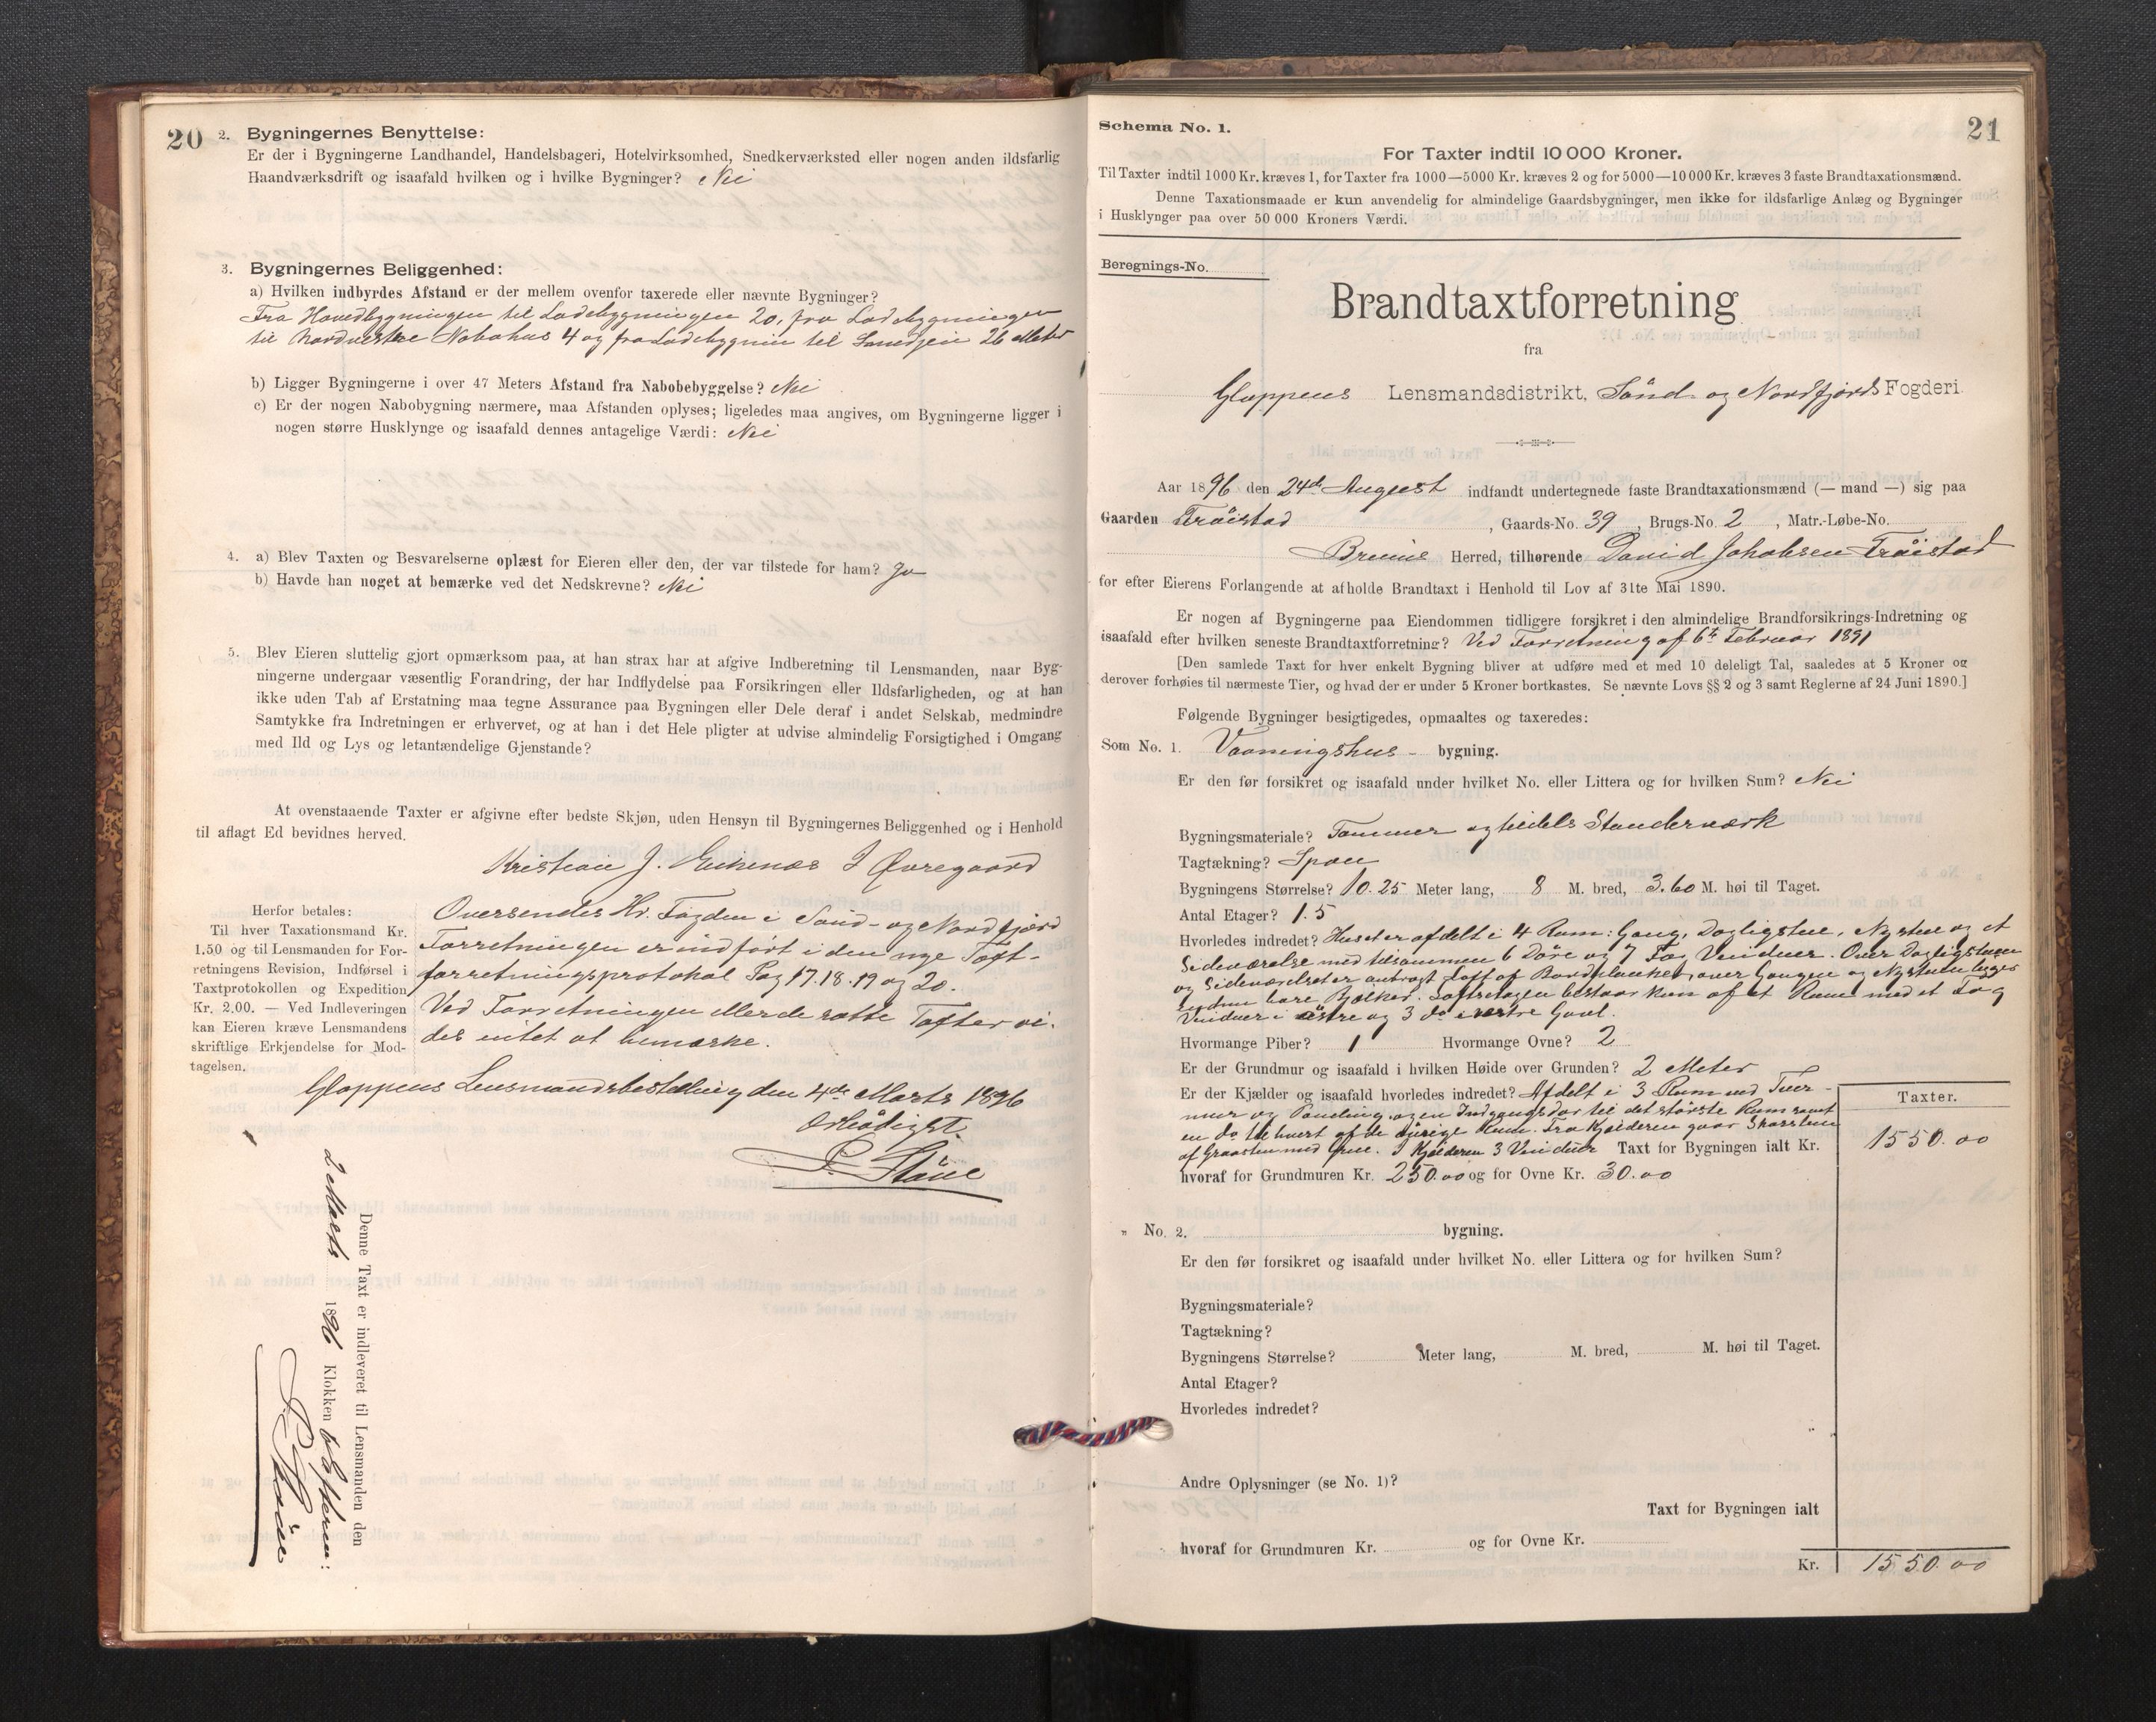 20
2. Bygningernes Benyttelse:
Er der i Bygningerne Landhandel, Handelsbageri, Hotelvirksomhed, Snedkerværksted eller nogen anden ildsfarlig
Haandværksdrift og isaafald hvilken og i hvilke Bygninger? Nei
3. Bygningernes Beliggenhed:
a) Hvilken indbyrdes Afstand er der mellem ovenfor taxerede eller nævnte Bygninger?
Fra Hovedbygningen til Ladebygningen 20, fra Ladebygningen
til nordvestre Nabohus 4 og fra Ladebygnin til 26 Meter
b) Ligger Bygningerne i over 47 Meters Afstand fra Nabobebyggelse? Nei
c) Er der nogen Nabobygning nærmere, maa Afstanden oplyses; ligeledes maa angives, om Bygningerne ligger i
nogen større Husklynge og isaafald dennes antagelige Værdi: Nei
4. a) Blev Taxten og Besvarelserne oplæst for Eieren eller den, der var tilstede for ham? Ja
b) Havde han noget at bemærke ved det Nedskrevne? Nei
5. Blev Eieren sluttelig gjort opmærksom paa, at han strax har at afgive Indberetning til Lensmanden, naar Byg-
ningerne undergaar væsentlig Forandring, der har Indflydelse paa Forsikringen eller Ildsfarligheden, og at han
ikke uden Tab af Erstatning maa tegne Assurance paa Bygningen eller Dele deraf i andet Selskab, medmindre
Samtykke fra Indretningen er erhvervet, og at han i det Hele pligter at udvise almindelig Forsigtighed i Omgang
med Ild og Lys og letantændelige Gjenstande?
At ovenstaaende Taxter er afgivne efter bedste Skjøn, uden Hensyn til Bygningernes Beliggenhed og i Henhold
til aflagt Ed bevidnes herved.
Kristian J. Eikenæs J Øvregaard
Herfor betales:
Til hver Taxationsmand Kr.
1.50 og til Lensmanden for For-
retningens Revision, Indførsel i
Taxtprotokollen og Expedition
Kr. 2.00. — Ved Indleveringen
kan Eieren kræve Lensmandens
skriftlige Erkjendelse for Mod-
tagelsen.
Oversendes Hr. Fogden i Sønd- og Nordfjord
Forretningen er indført i den nye Taxt-
forretningsprotokol Pag 17. 18. 19 og 20.
Ved Forretningen eller de satte Taxter vi-
des intet at bemærke.
Gloppens Lensmandsbestilling den 4de Marts 1896
Ærbødigst.
Denne Taxt er indleveret til Lensmanden den
2 Marts 1896 Klokken 6 Eftderm:
21
Schema No. 1.
For Taxter indtil 10 000 Kroner.
Til Taxter indtil 1000 Kr. kræves 1, for Taxter fra 1000—5000 Kr. kræves 2 og for 5000—10 000 Kr. kræves 3 faste Brandtaxationsmænd.
Denne Taxationsmaade er kun anvendelig for almindelige Gaardsbygninger, men ikke for ildsfarlige Anlæg og Bygninger
i Husklynger paa over 50 000 Kroners Værdi.
Beregnings-No.
Brandtaxtforretning
fra
Gloppens Lensmandsdistrikt, Sønd- og Nordfjords Fogderi
Aar 1896 den 24de August indfandt undertegnede faste Brandtaxationsmænd (— mand —) sig paa
Gaarden Trøistad, Gaards-No. 39, Brugs-No. 2, Matr.-Løbe-No.
Breims Herred, tilhørende David Jakobsen Trøistad
for efter Eierens Forlangende at afholde Brandtaxt i Henhold til Lov af 31te Mai 1890.
Er nogen af Bygningerne paa Eiendommen tidligere forsikret i den almindelige Brandforsikrings-Indretning og
isaafald efter hvilken seneste Brandtaxtforretning? Ved Forretning af 6te Februar 1891
[Den samlede Taxt for hver enkelt Bygning bliver at udføre med et med 10 deleligt Tal, saaledes at 5 Kroner og
derover forhøies til nærmeste Tier, og hvad der er under 5 Kroner bortkastes. Se nævnte Lovs §§ 2 og 3 samt Reglerne af 24 Juni 1890.]
Følgende Bygninger besigtigedes, opmaaltes og taxeredes:
Som No. 1. Vaaningshus- bygning.
Er den før forsikret og isaafald under hvilket No. eller Littera og for hvilken Sum? Nei
Bygningsmateriale? Tømmer og tildels Standerværk
Tagtækning? Spon
Bygningens Størrelse? 10.25 Meter lang, 8 M. bred, 3.60 M. høi til Taget.
Antal Etager? 1.5
Hvorledes indredet? Huset er afdelt i 4 Rum: Gang, Dagligstue, Nystue og et
Sideværelse med tilsammen 6 Døre og 7 Fag Vinduer. Over Dagligstuen
og Sideværelset er anbragt Loft af Bordplanker, over Gangen og Nystuen ligger
endnu bare Bjelker. Loftsetagen bestaar kun af et Rum med et Fag
Vinduer i østre og 3 do i vestre Gavl.
Hvormange Piber? 1 Hvormange Ovne? 2
Er der Grundmur og isaafald i hvilken Høide over Grunden? 2 Meter
Er der Kjælder og isaafald hvorledes indredet? Afdelt i 3 Rum ved Tver-
mur og Paneling og en Indgangsdør til det største Rum samt
en do til hvert af de øvrige Rum. Fra Kjælderen gaar Skorsten
af Graasten med Grue. I Kjælderen 3 Vinduer Taxt for Bygningen ialt Kr.
Taxter.
1550.00
hvoraf for Grundmuren Kr. 250.00 og for Ovne Kr. 30.00
" No. 2. bygning.
Er den før forsikret og isaafald under hvilket No. eller Littera og for hvilken Sum?
Bygningsmateriale?
Tagtækning?
Bygningens Størrelse? Meter lang, M. bred, M. høi til Taget.
Antal Etager?
Hvorledes indredet?
Andre Oplysninger (se No. 1)?
Taxt for Bygningen ialt
hvoraf for Grundmuren Kr. og for Ovne Kr.
Kr. 1550.00